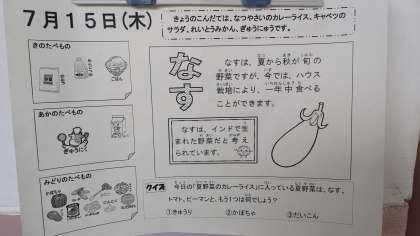 7月15日(木)
きょうのこんだては、なつやさいのカレーライス、キャベツの
サラダ、れいとうみかん、ぎゅうにゅうです。
きのたべもの
ごはん
あかのたべもの
ぎゅうにく
みどりのたべもの
なす
なすは、夏から秋が旬の
野菜ですが、今では、ハウス
栽培により、一年中食べる
ことができます。
なすは、インドで生
まれた野菜だと考え
られています。
クイズ 今日の「夏野菜のカレーライス」に入っている夏野菜は、なす、
トマト、ピーマンと、もう1つは何でしょう?
①きゅうり ②かぼちゃ ③だいこん